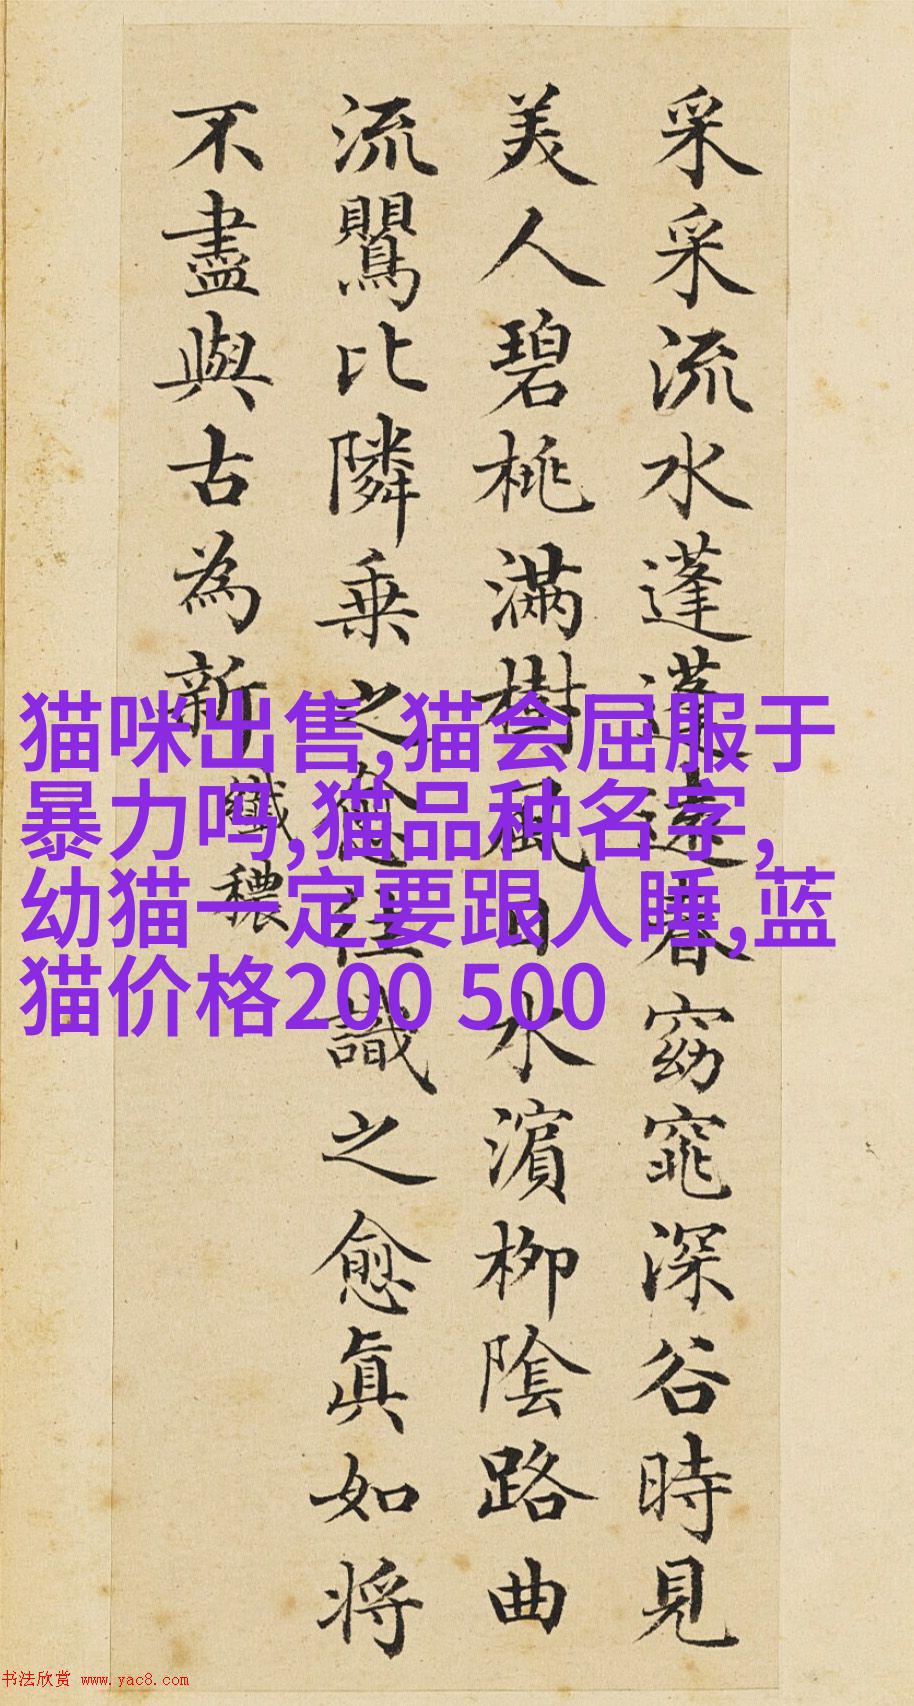 采采流水蓬蓬遠春窈窕深谷時見
美人碧桃滿樹風日水濱柳陰路曲
流鸎比隣乗之愈往識之愈眞如将
不盡與古為新
纖穠
猫咪出售,猫会屈服于
暴力吗,猫品种名字,
幼猫一定要跟人睡,蓝
猫价格200 500
书法欣赏 www.yac8.com